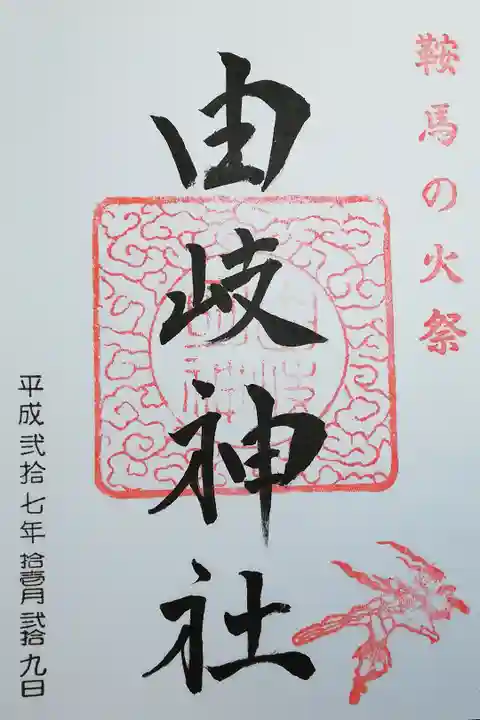 鞍馬の火祭
由岐神社
平成弐拾七年拾壹月弐拾九日